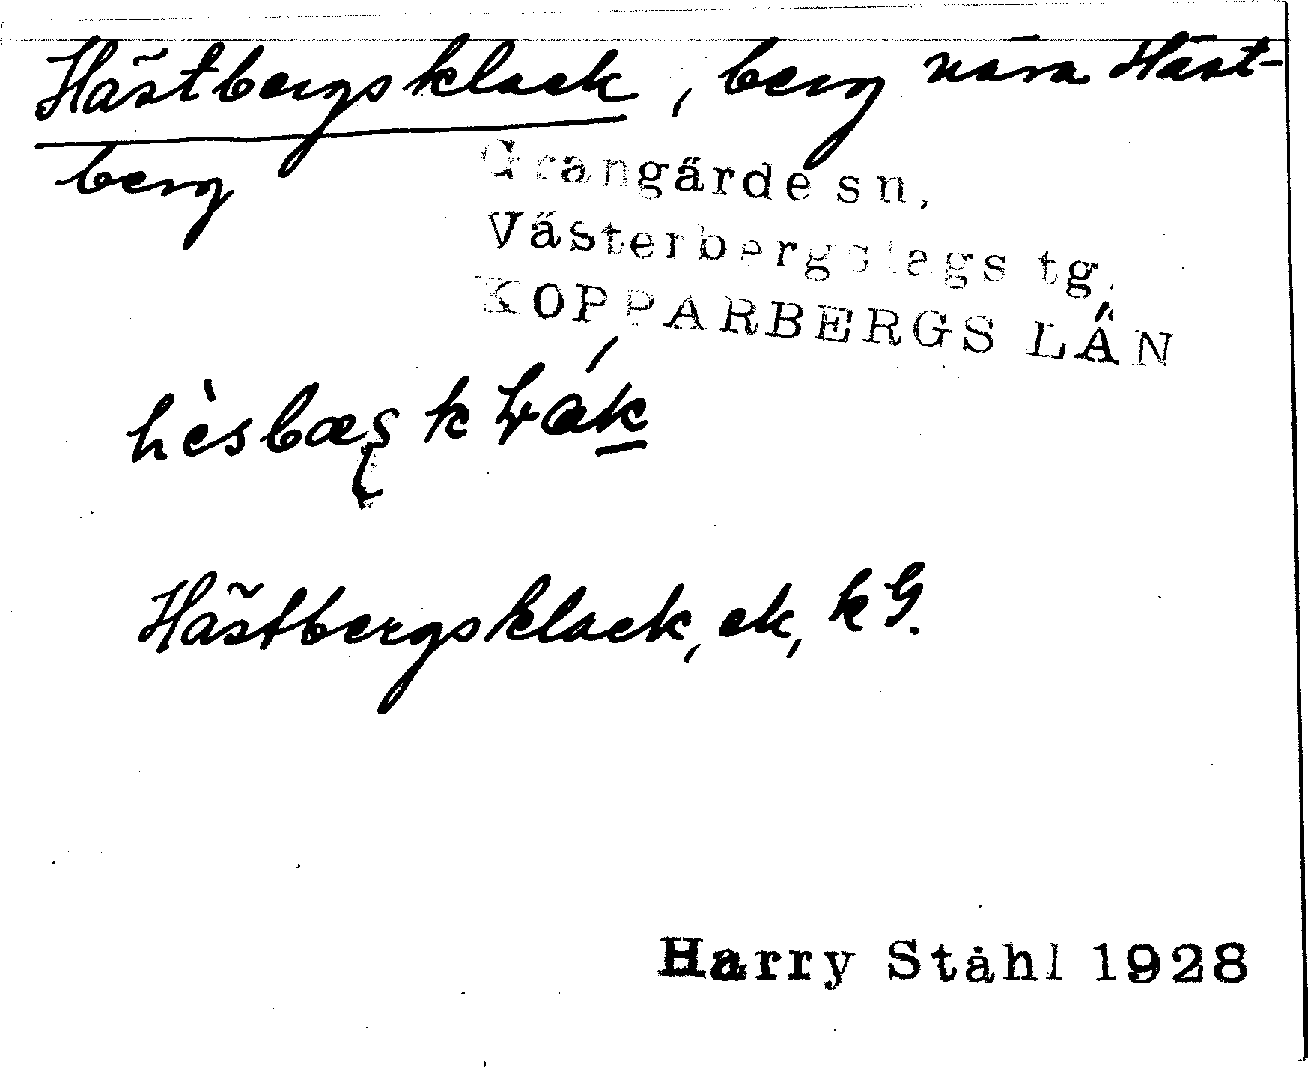 Hästbergsklack, berg nära Häst-
berg
Grangärde sn.
Västerbergslags tg.
KOPPARBERGS LÄN
Hästbergsklack, ek, kG.
Harry Ståhl 1928